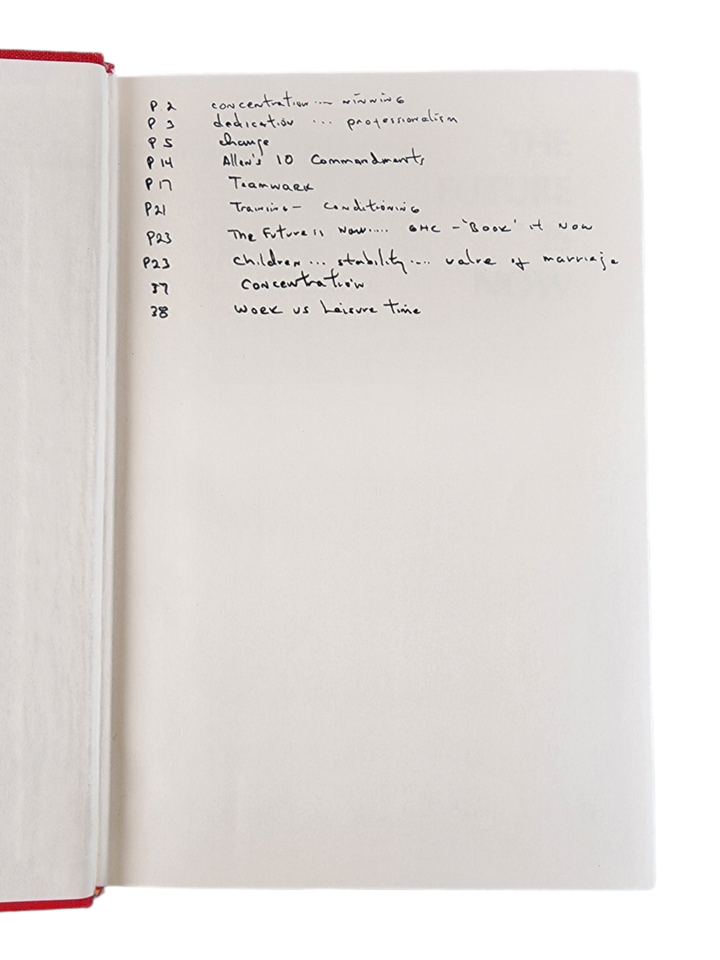 P 2 concentration ... winning
P 3 dedication ... professionalism
P 5 change
P 14 Allen's 10 Commandments
P 17 Teamwork
P21 Training - Conditioning
P23 The Future is Now..... GHC - 'Book' it Now
P23 children ... stability.... value of marriage
37 Concentration
38 Work vs Leisure time
THE
FUTURE
NOW